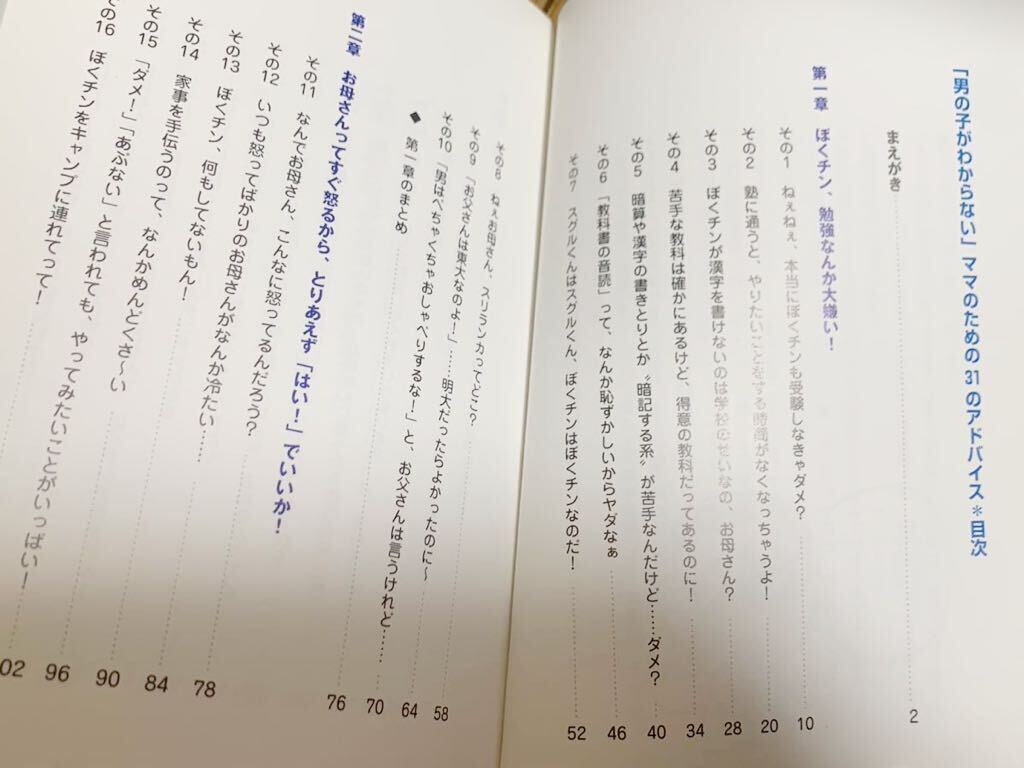 「男の子がわからない」ママのための31のアドバイス＊目次
まえがき……2
第一章　ぼくチン、勉強なんか大嫌い！
その1　ねぇねぇ、本当にぼくチンも受験しなきゃダメ？……10
その2　塾に通うと、やりたいことをする時間がなくなっちゃうよ！……20
その3　ぼくチンが漢字を書けないのは学校のせいなの、お母さん？……28
その4　苦手な教科は確かにあるけど、得意の教科だってあるのに！……34
その5　暗算や漢字の書きとりとか〝暗記する系〟が苦手なんだけど……ダメ？……40
その6　「教科書の音読」って、なんか恥ずかしいからヤダなぁ……46
その7　スグルくんはスグルくん、ぼくチンはぼくチンなのだ！……52
その8　ねぇお母さん、スリランカってどこ？……58
その9　「お父さんは東大なのよ！」……明大だったらよかったのに〜……64
その10　「男はぺちゃくちゃおしゃべりするな！」と、お父さんは言うけれど……70
◆　第一章のまとめ……76
第二章　お母さんってすぐ怒るから、とりあえず「はい！」でいいか！
その11　なんでお母さん、こんなに怒ってるんだろう？……78
その12　いつも怒ってばかりのお母さんがなんか冷たい……84
その13　ぼくチン、何もしてないもん！……90
その14　家事を手伝うのって、なんかめんどくさ〜い……96
その15　「ダメ！」「あぶない」と言われても、やってみたいことがいっぱい！……02
その16　ぼくチンをキャンプに連れてって！